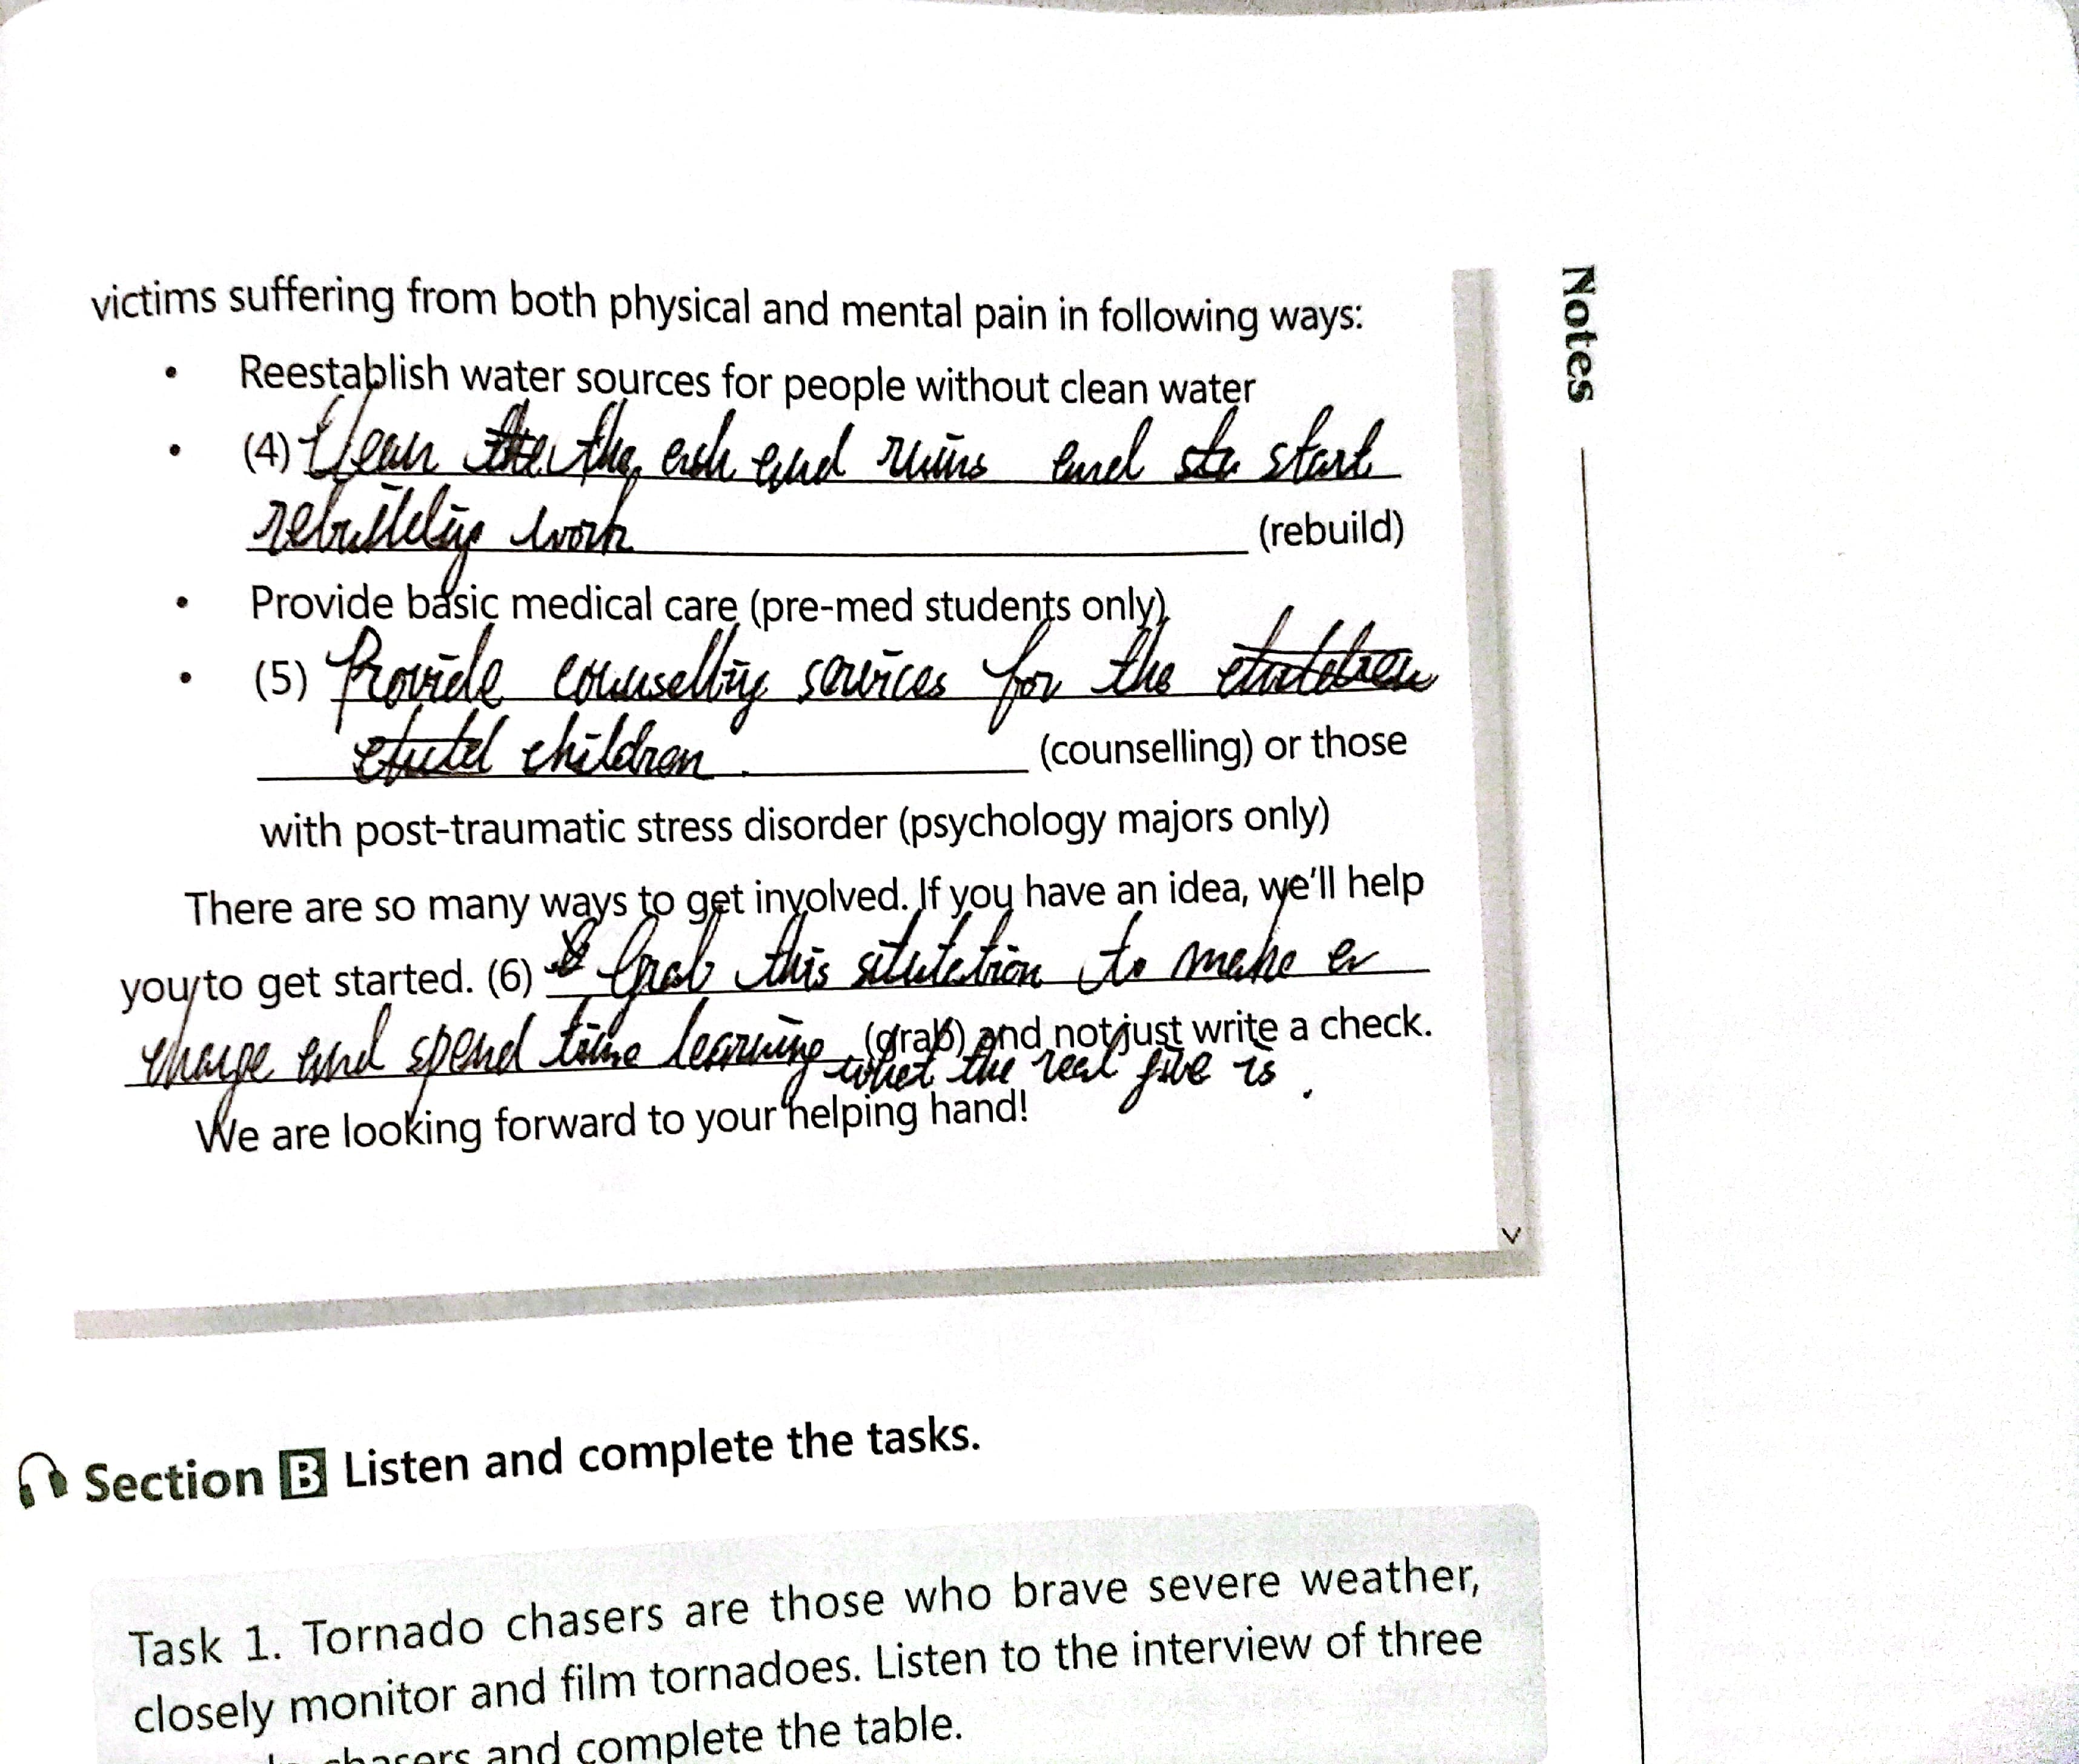 victims suffering from both physical and mental pain in following ways:
Notes
• Reestablish water sources for people without clean water
• (4) Clean the ash and ruins and start
rebuilding work (rebuild)
• Provide basic medical care (pre-med students only)
• (5) Provide counselling services for the
children (counselling) or those
with post-traumatic stress disorder (psychology majors only)
There are so many ways to get involved. If you have an idea, we'll help
you to get started. (6) Grab this situtetion to make a
change and spend time learning (grab) and not just write a check.
what the real five is.
We are looking forward to your helping hand!
Section B Listen and complete the tasks.
Task 1. Tornado chasers are those who brave severe weather,
closely monitor and film tornadoes. Listen to the interview of three
chasers and complete the table.